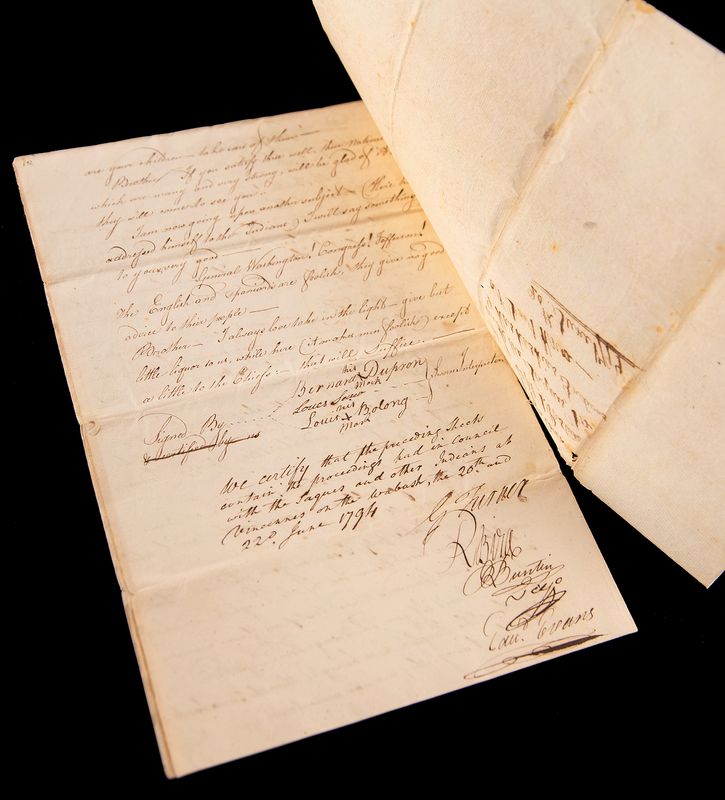 10
are your children — take care of them —
Brother If you satisfy them well, their nations
which are many and very strong, will be glad of it
they will come to see you —
I am now going upon another subject — (Here he
addressed himself to the Indians) I will say something
to you, very good —
General Washington! Congress! Jefferson!
The English and Spaniards are foolish, they give no good
advice to their people —
Brother — I always love to be in the light — give but
little liquor to us, while here (it makes men foolish) except
a little to the Chiefs — that will suffice. —
Signed By
Bernard Dupron
his
mark
Louis
Louis Bolong
his
mark
Sworn Interpreters
certified by us
We certify that the preceding sheets
contain the proceedings had in Council
with the Saques and other Indians at
Vincennes on the Wabash, the 20th and
22d. June 1794
G Turner
R Buntin